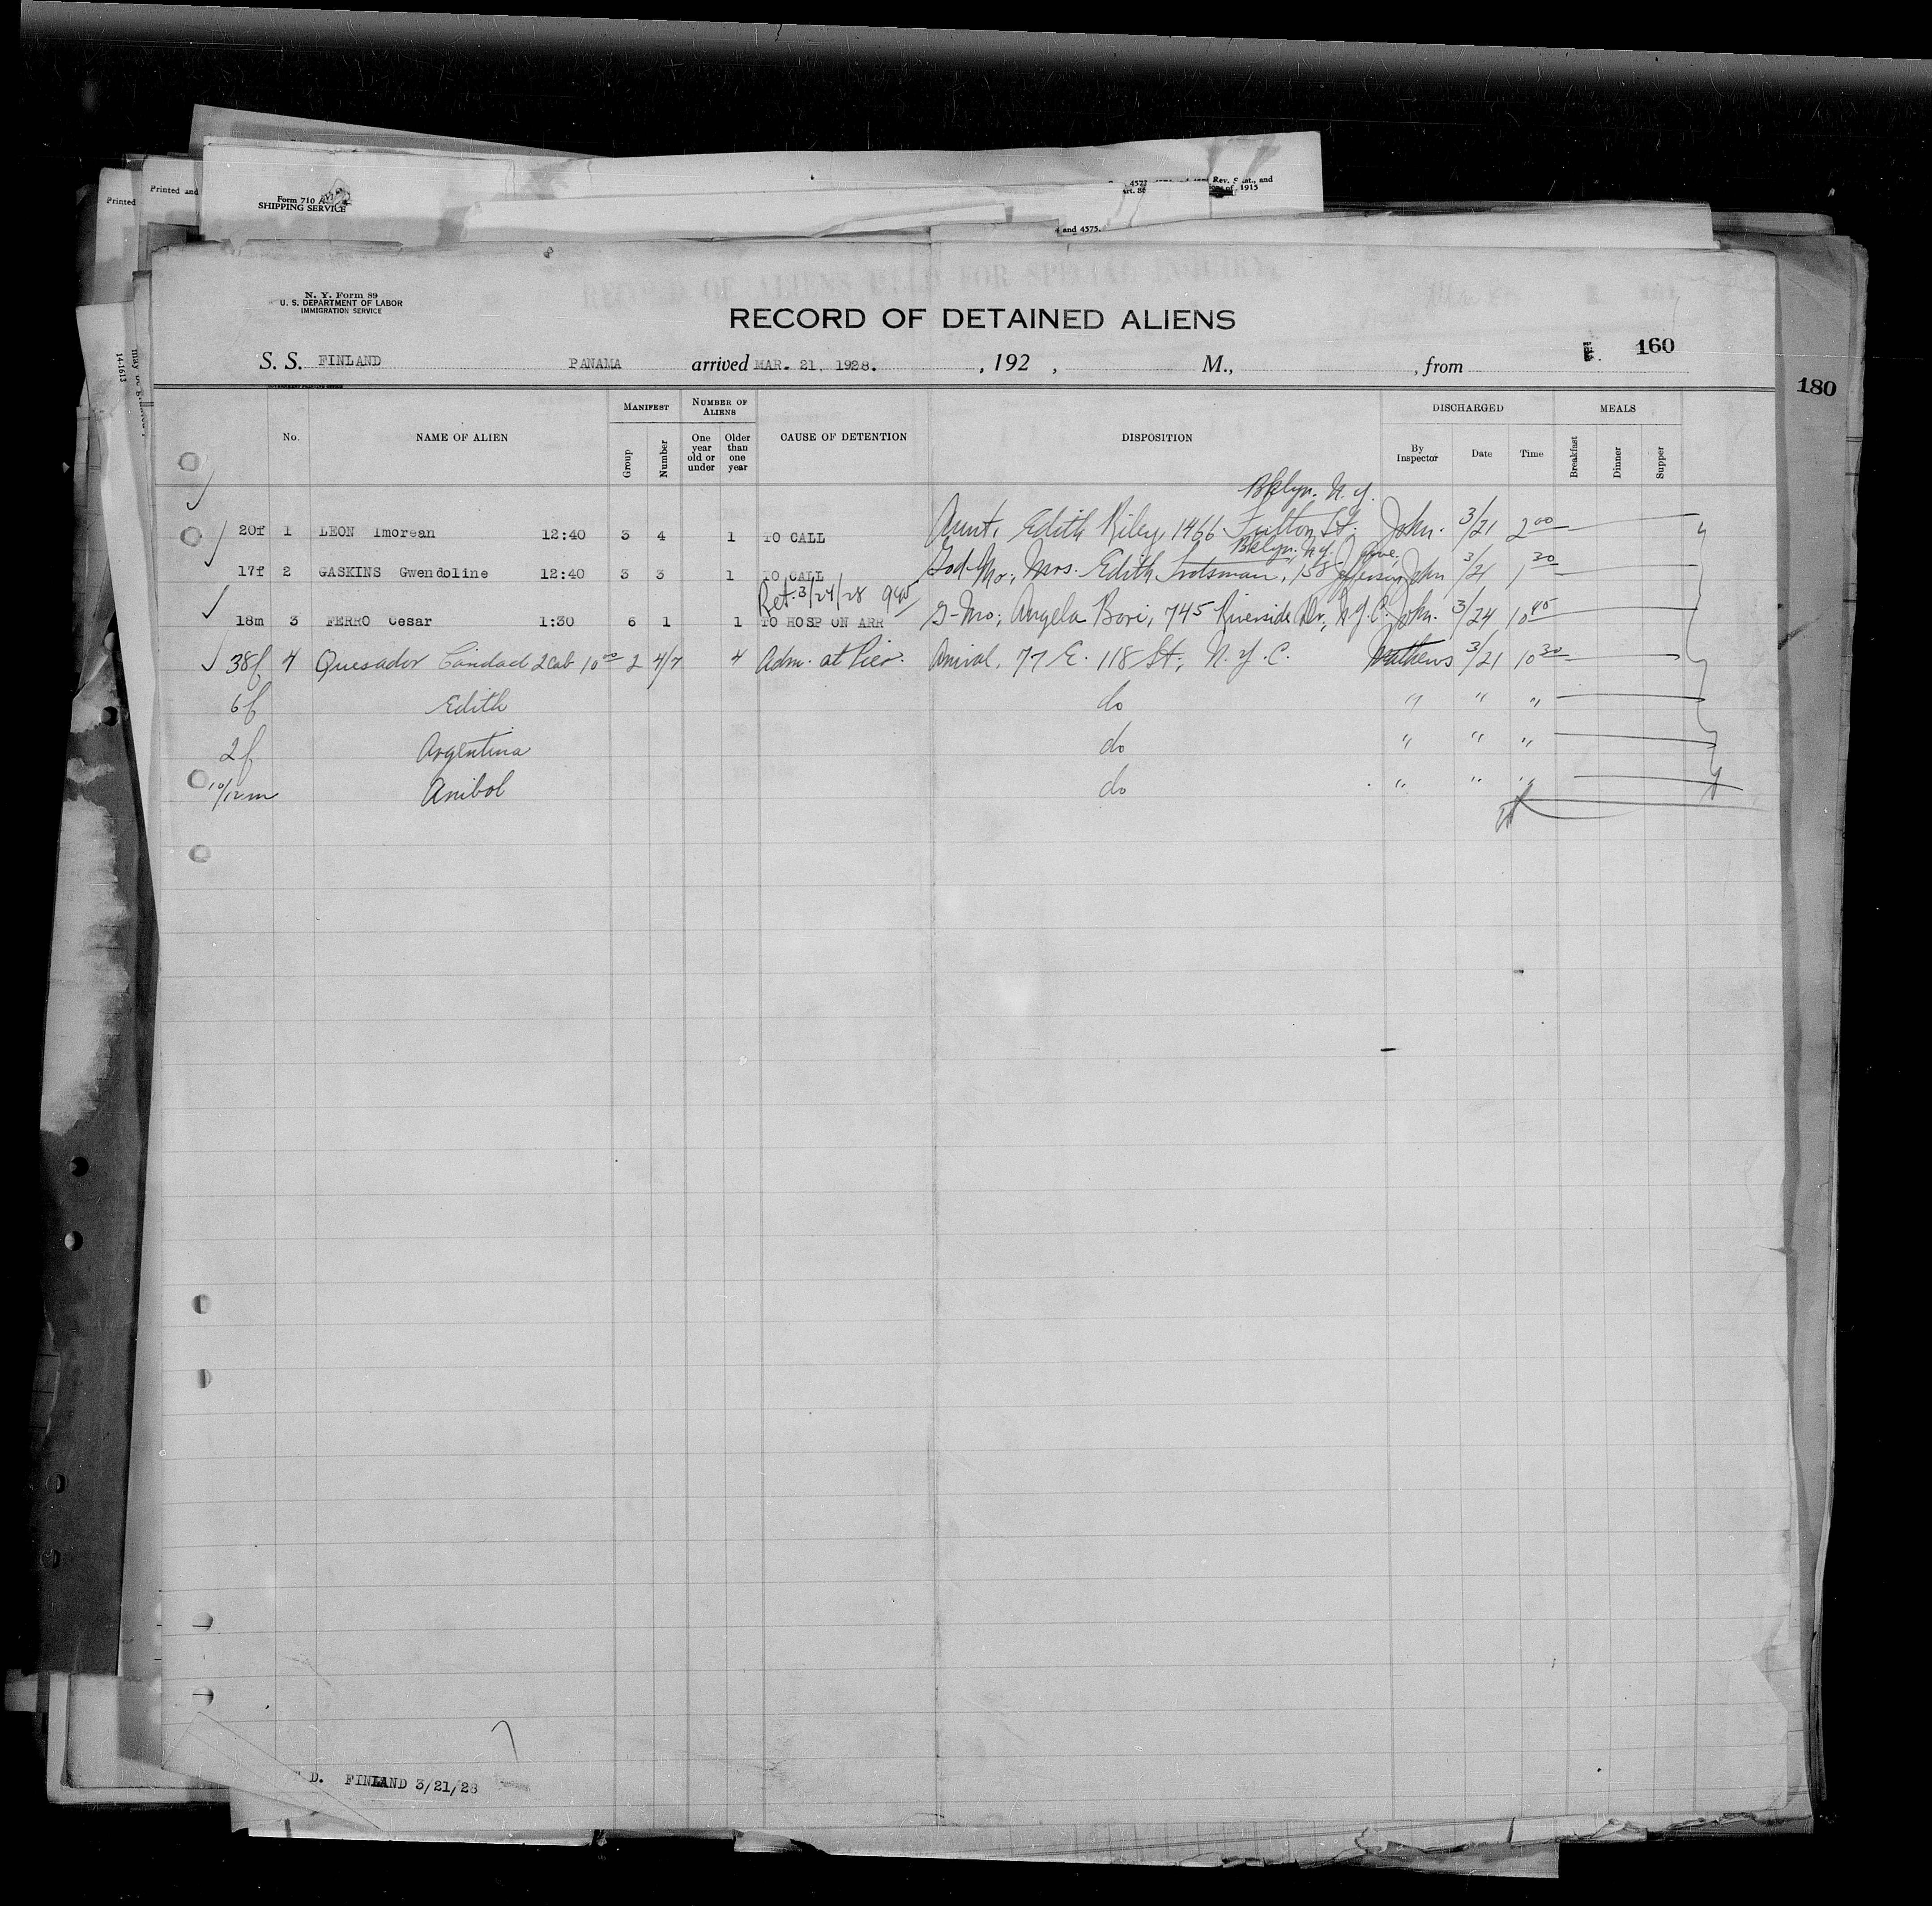 Printed and
Printed
Form 710 A
SHIPPING SERVICE
4572
Rev. Stat., and
of 1915
4 and 4575.
N. Y. Form 89
U. S. DEPARTMENT OF LABOR
IMMIGRATION SERVICE
RECORD OF DETAINED ALIENS
160
180
S. S. FINLAND PANAMA arrived MAR. 21, 1928. , 192 , M., , from
14-1613
No. NAME OF ALIEN MANIFEST Group Number NUMBER OF ALIENS One year old or under Older than one year CAUSE OF DETENTION DISPOSITION DISCHARGED By Inspector Date Time MEALS Breakfast Dinner Supper
Bklyn. N.Y.
20f 1 LEON Imorean 12:40 3 4 1 TO CALL Aunt, Edith Riley, 1466 Fulton St. John. 3/21 2 00
Bklyn. N.Y. Ave.
17f 2 GASKINS Gwendoline 12:40 3 3 1 TO CALL God-Mo., Mrs. Edith 158 Jefferson John 3/21 1 30
Ret. 3/24/28 9 45
18m 3 FERRO Cesar 1:30 6 1 1 TO HOSP ON ARR G-Mo; Angela Bori, 745 Riverside Dr., N.Y.C. John. 3/24 10 45
38f 4 Quesador Candad 2 Cab 10 00 2 4/7 4 Adm. at Pier. 77 E. 118 St., N.Y.C. Mathews 3/21 10 30
6f Edith do " " "
2f Argentina do " " "
10/12m Anibol do " " "
D. FINLAND 3/21/28